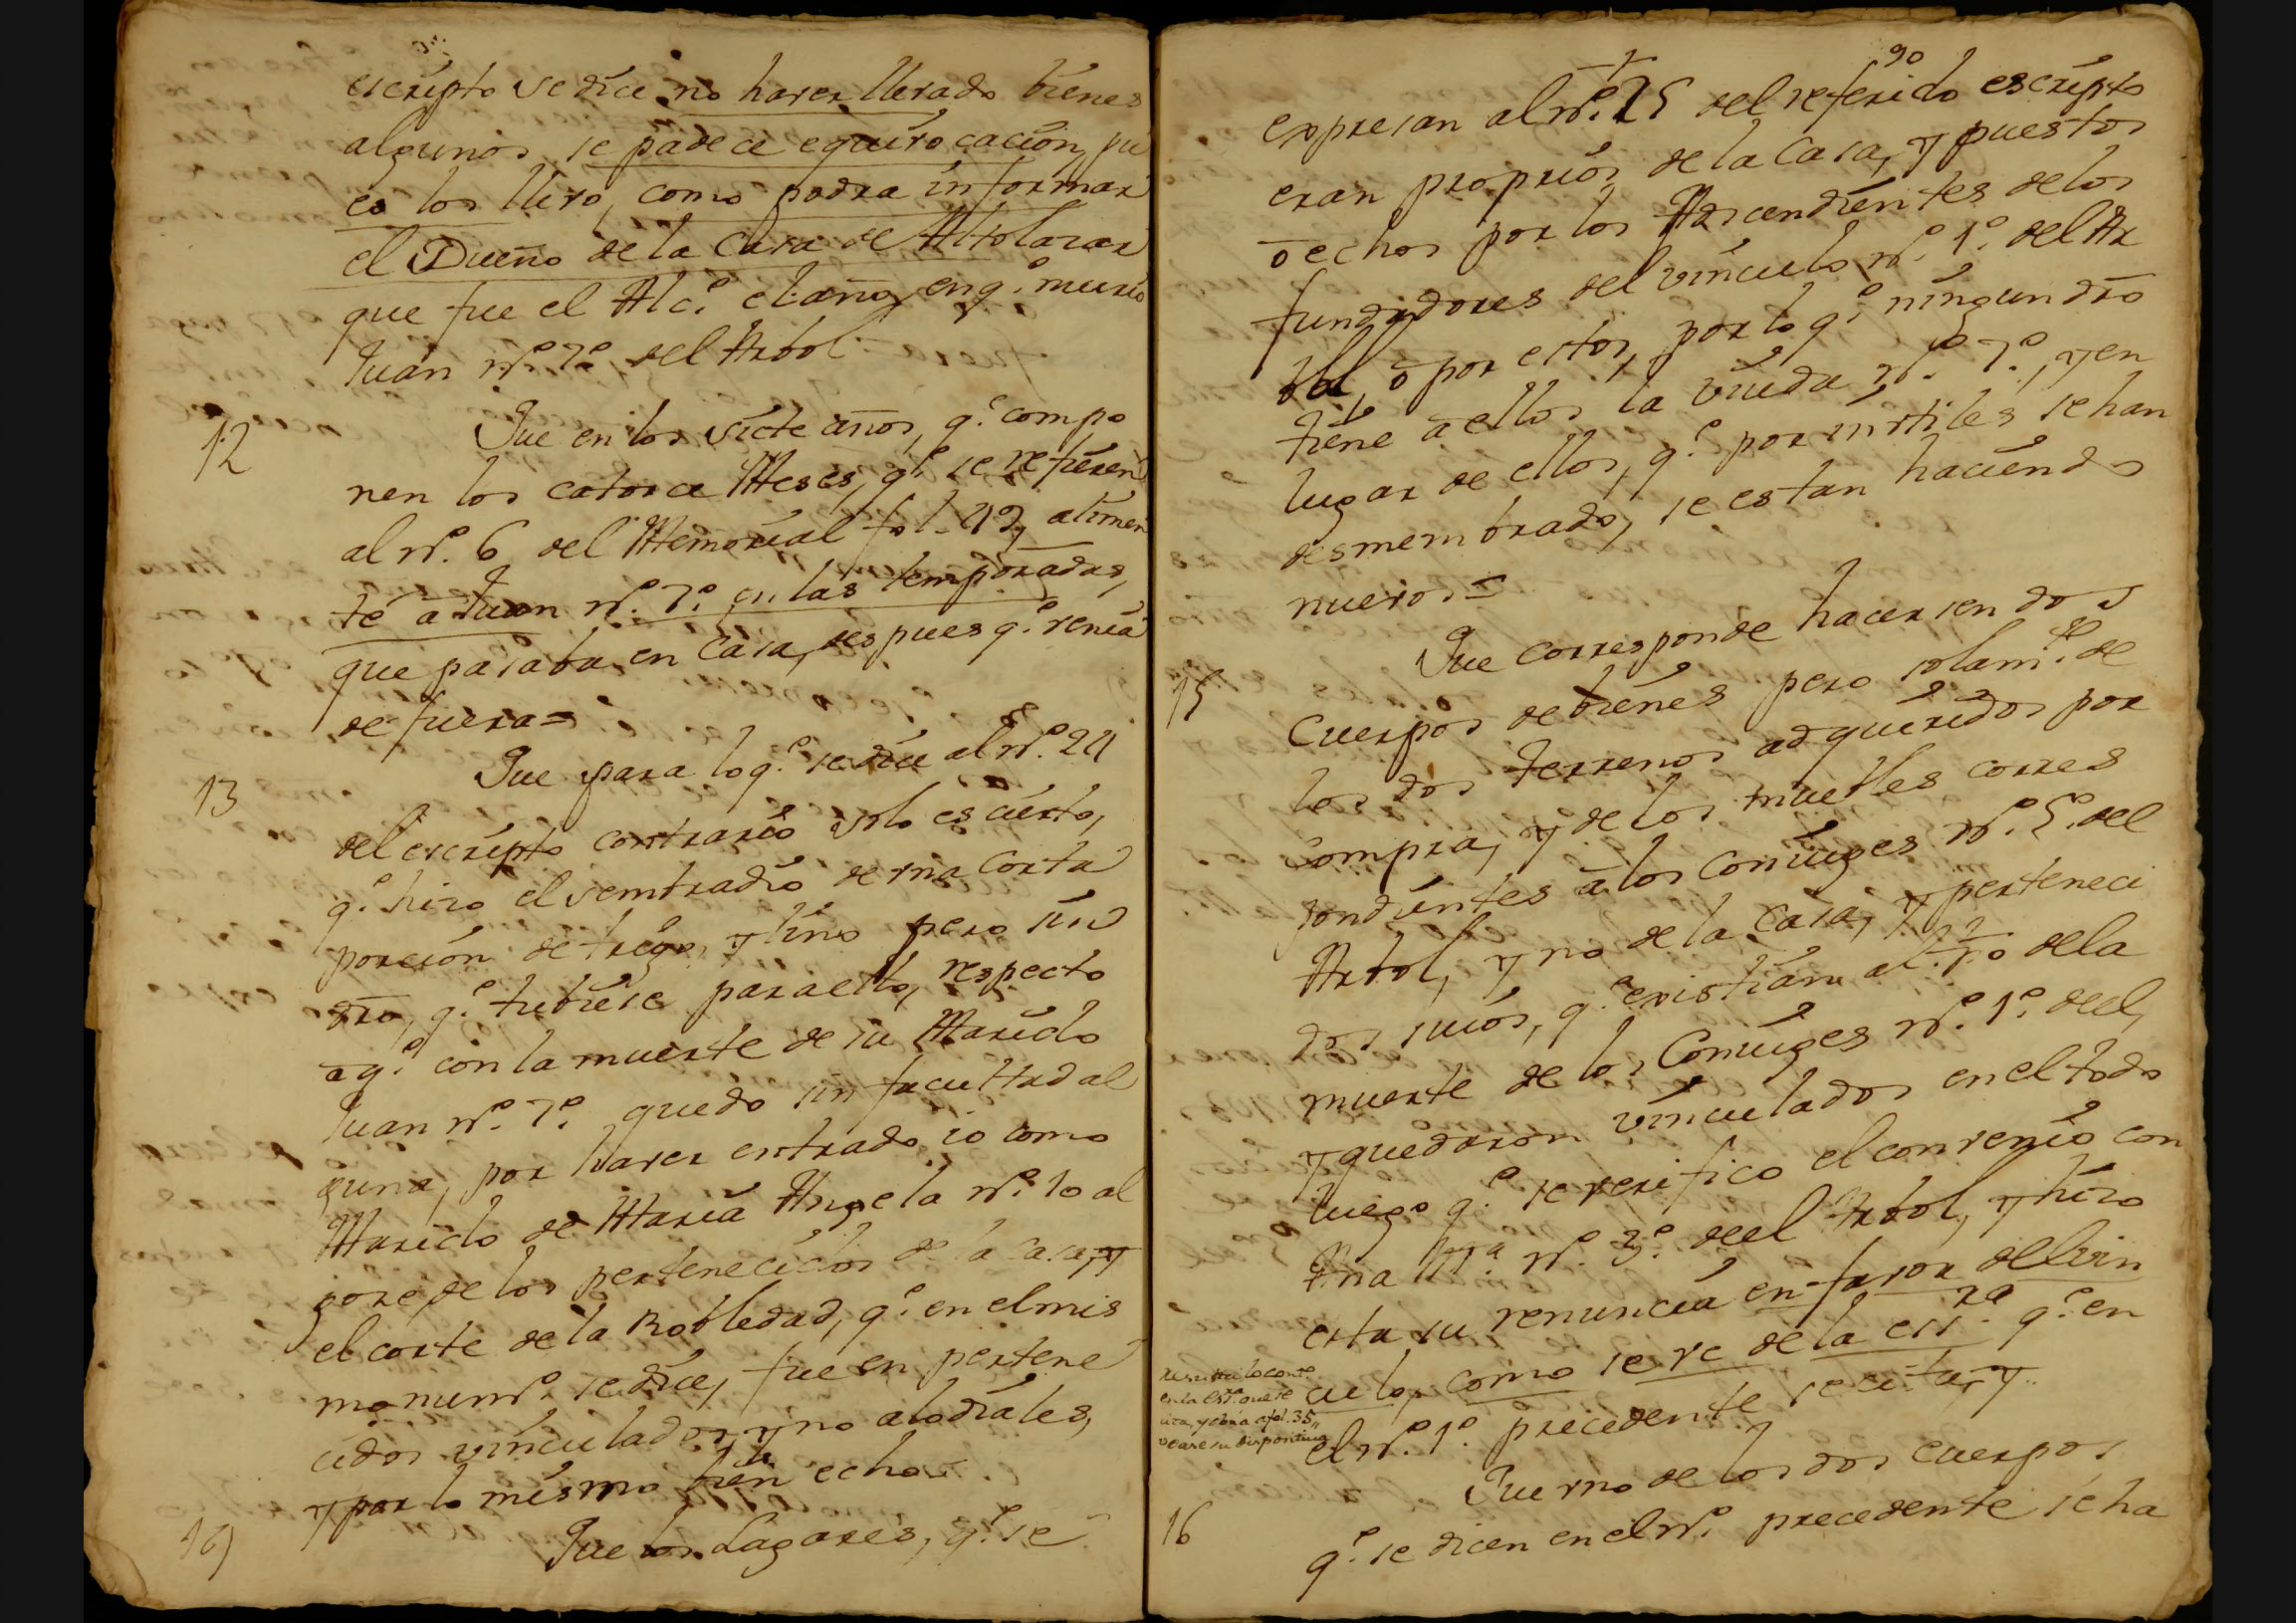 escripto se dice no haver llevado bienes
algunos, se padece equivocacion, pu
es los llevo, como podra informar
el Dueño de la Casa de Altolarar
que fue el Alc.e el año, en q.e murio
Juan nº. 7º. del Arbol
12
Que en los siete años, q.e compo
nen los catorce Meses, q.e se refieren
al nº. 6 del Memorial fol. 42, alimen
té a Juan nº. 7º. en las temporadas,
que pasaba en Casa, despues q.e venia
de fuera=
13
Que para lo q.e se dice al nº. 24
del escripto contrario solo es cierto,
q.e hizo el sembradio de vna corta
porcion de trigo, y lino pero sin
dro, q.e tubiese para ello, respecto
a q.e con la muerte de su Marido
Juan nº. 7º. quedo sin facultad al
guna, por haver entrado io como
Marido de Maria Angela nº. 10 al
goze de los pertenecidos de la casa, y
el corte de la Robledad, q.e en el mis
mo num.º se dice, fue en pertene
cidos vinculados, y no alodiales,
y por lo mismo bien echo=
14
Que los Lagares, q.e se
90
expresan al nº. 25 del referido escripto
eran proprios de la Casa, y puestos
o echos por los Ascendientes de los
fundadores del vinculo nº. 1º. del Ar
bol, ó por estos, por lo q.e ningun dro
tiene a ellos la viuda nº. 7º., y en
lugar de ellos, q.e por inutiles se han
desmembrado, se estan haciendo
nuevos=
15
Que corresponde hacer sendos
cuerpos de bienes pero solam.te de
los dos terrenos adquiridos por
compra, y de los muebles corres
pondientes a los Conjuges nº. 5º. del
Arbol, y no de la Casa, y perteneci
dos suios, q.e existian al tpo de la
muerte de los Conjuges nº. 1º. de el,
y quedaron vinculados en el todo
luego q.e se verifico el convenio con
Ana M.a nº. 3º. de el Arbol, y hizo
esta su renuncia en favor del vin
culo, como se ve de la ess.ra q.e en
el nº. 1º. precedente se cita, y
Resulta lo cont.º
en la Esc.ra que se
cita, y obra a fol. 35,,
vease su dispositiva
16
Que vno de los dos cuerpos
q.e se dicen en el nº. precedente se ha